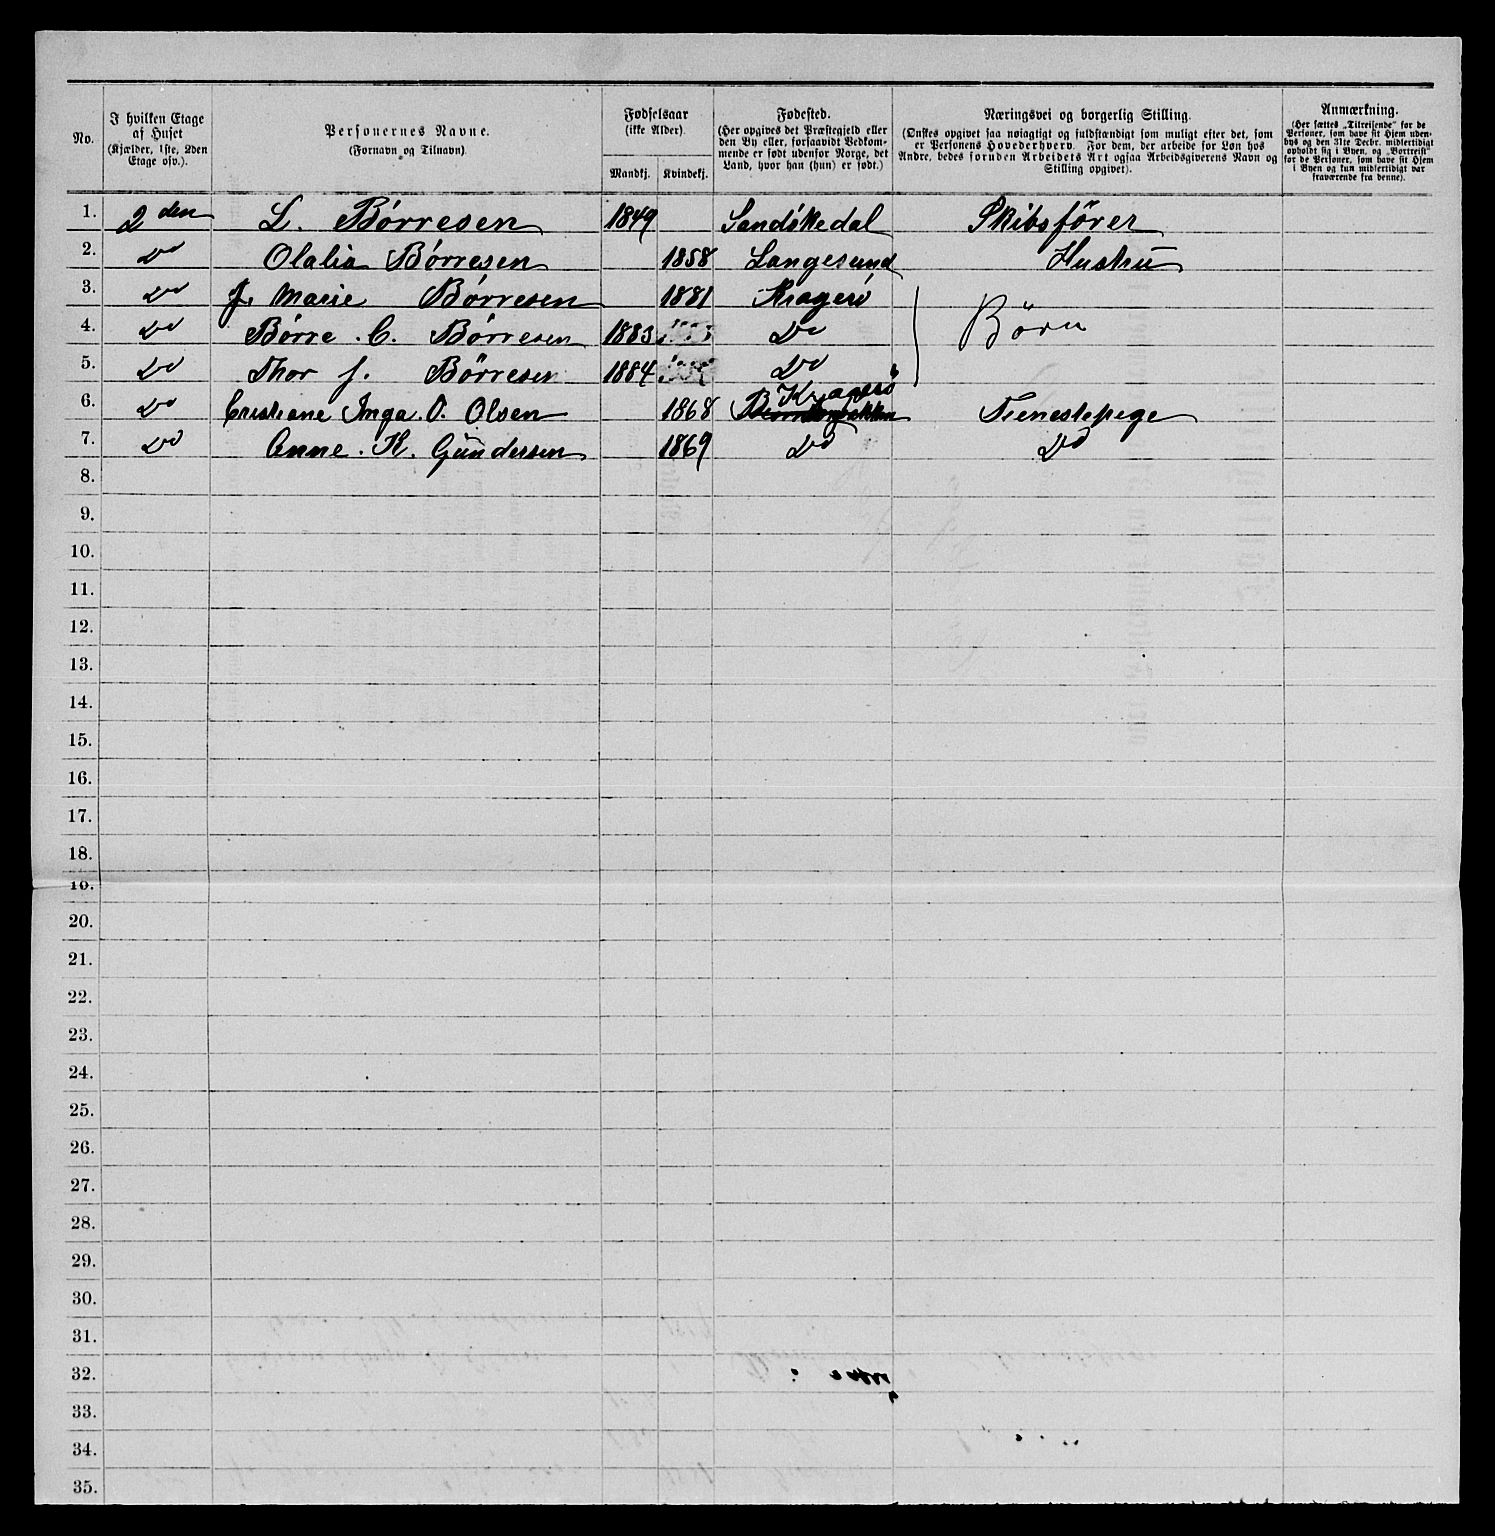 No.
I hvilken Etage
af Huset
(Kjælder, 1ste, 2den
Etage osv.).
Personernes Navne.
(Fornavn og Tilnavn)
Fødselsaar
(ikke Alder)
Mandkj. Kvindekj.
Fødested.
(Her opgives det Præstegjeld eller
den By eller, forsaavidt Vedkom-
mende er født udenfor Norge, det
Land, hvor han (hun) er født.)
Næringsvei og borgerlig Stilling.
(Ønskes opgivet saa nøiagtigt og fuldstændigt som muligt efter det, som
er Personens Hovederhverv. For dem, der arbeide for Løn hos
Andre, bedes foruden Arbeidets Art ogsaa Arbeidsgiverens Navn og
Stilling opgivet).
Anmærkning.
(Her sættes „Tilreisende" for de
Personer, som have sit Hjem uden-
bys og den 31te Decbr. midlertidigt
opholdt sig i Byen, og „Bortreist"
for de Personer, som have sit Hjem
i Byen og kun midlertidigt var
fraværende fra denne).
1. 2den L. Børresen 1849 Sandökedal Skibsförer
2. Do Olalia Børresen 1858 Langesund Hustru
3. Do J. Marie Børresen 1881 Kragerö
4. Do Børre. C. Børresen 1883 Do Börn
5. Do Thor J. Børresen 1884 Do
6. Do Cristiane Inga. O. Olsen 1868 Kragerö Tjenestepige
7. Do Anne. K. Gundersen 1869 Do Do
8.
9.
10.
11.
12.
13.
14.
15.
16.
17.
18.
19.
20.
21.
22.
23.
24.
25.
26.
27.
28.
29.
30.
31.
32.
33.
34.
35.